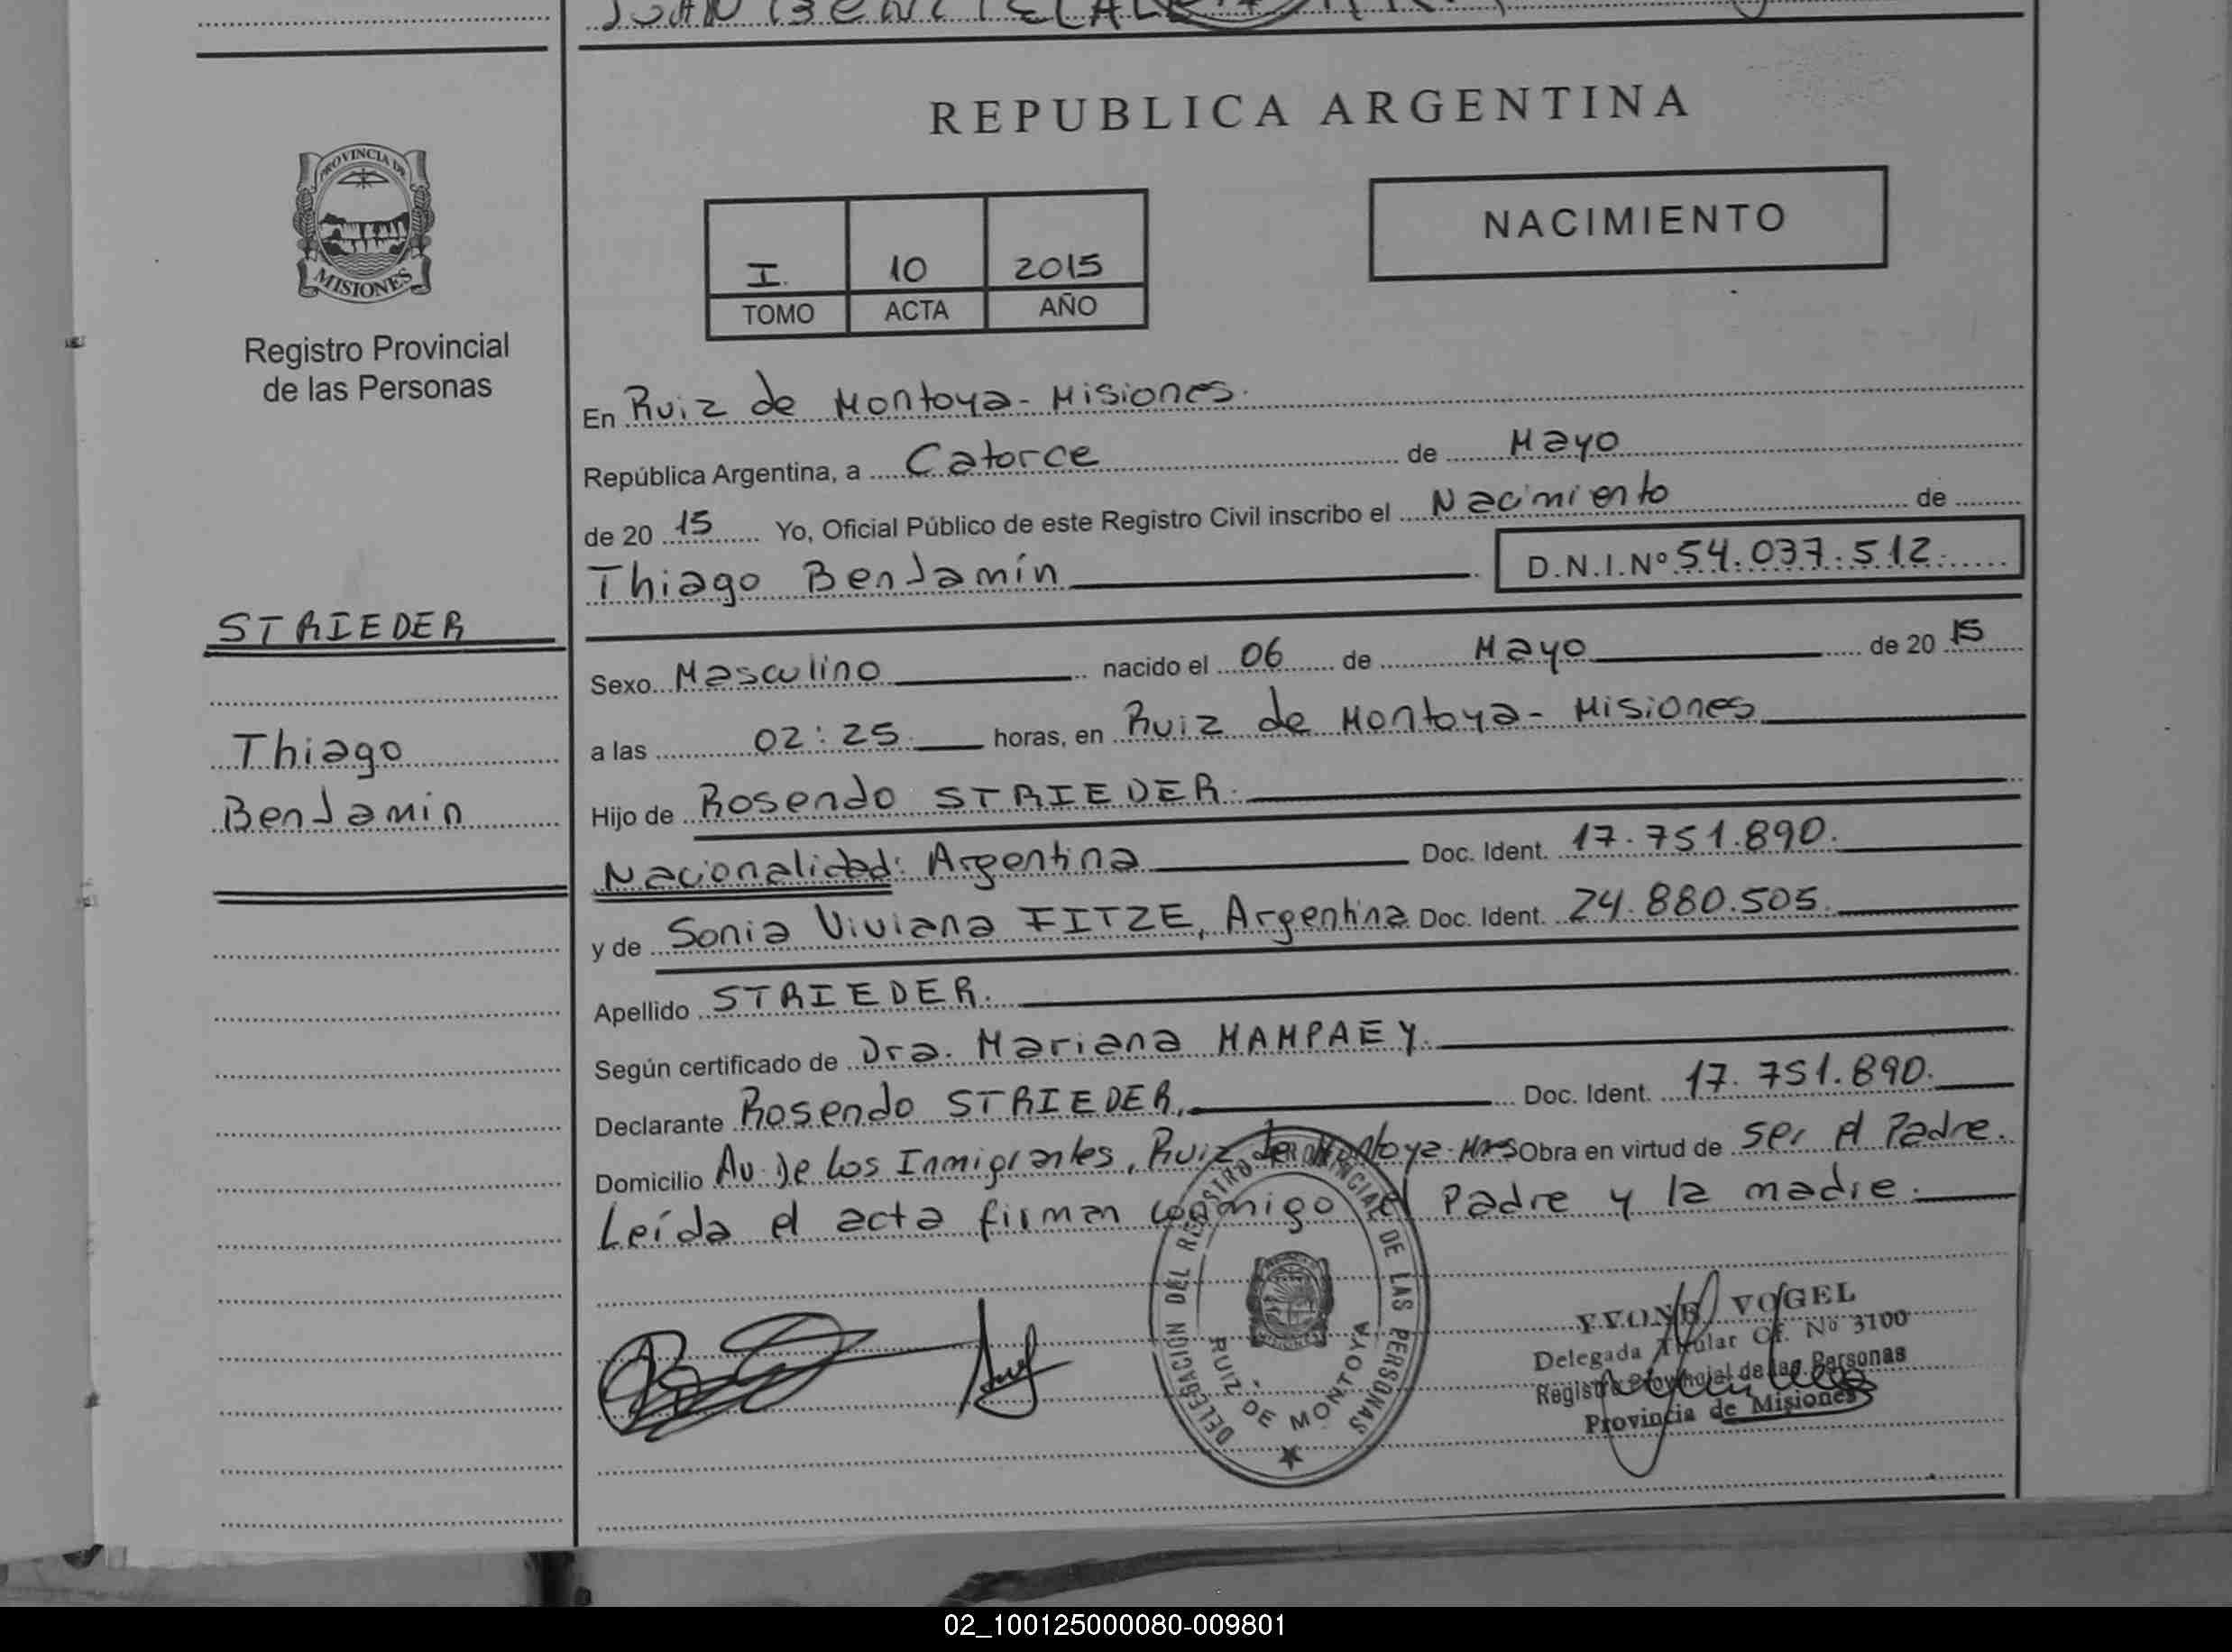 REPUBLICA ARGENTINA
PROVINCIA DE
MISIONES
Registro Provincial
de las Personas
NACIMIENTO
I. 10 2015
TOMO ACTA AÑO
En Ruiz de Montoya - Misiones.
República Argentina, a Catorce de Mayo
de 20 15 Yo, Oficial Público de este Registro Civil inscribo el Nacimiento de
Thiago Benjamín D.N.I.Nº 54.037.512.
STRIEDER
Thiago
Benjamin
Sexo Masculino nacido el 06 de Mayo de 20 15
a las 02:25 horas, en Ruiz de Montoya - Misiones
Hijo de Rosendo STRIEDER.
Nacionalidad: Argentina Doc. Ident. 17.751.890.
y de Sonia Viviana FITZE, Argentina Doc. Ident. 24.880.505.
Apellido STRIEDER.
Según certificado de Dra. Mariana MAMPAEY.
Declarante Rosendo STRIEDER, Doc. Ident. 17.751.890.
Domicilio Av. De Los Inmigrantes, Ruiz de Montoya - Mns Obra en virtud de ser el Padre.
Leída el acta firman conmigo el Padre y la madre.
DELEGACION DEL REGISTRO PROVINCIAL DE LAS PERSONAS
RUIZ DE MONTOYA
YVONE VOGEL
Delegada Titular Of. Nº 3100
Registro Provincial de las Personas
Provincia de Misiones
02_100125000080-009801